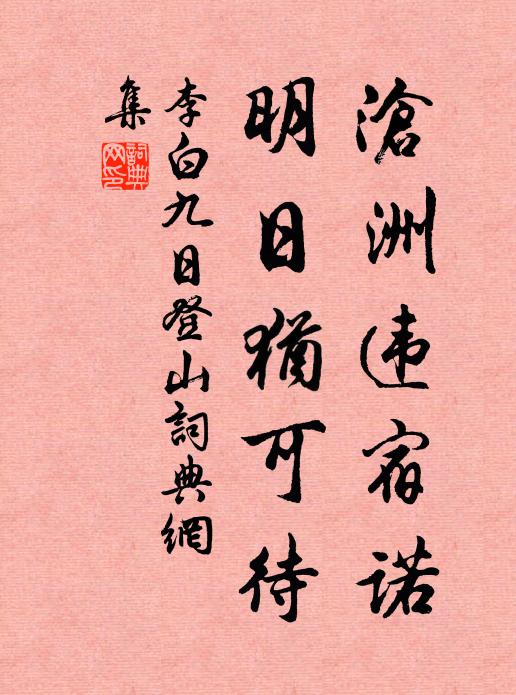 滄洲违宿诺
明日猶可待
李白九日登山詞典網
集
詞典網印